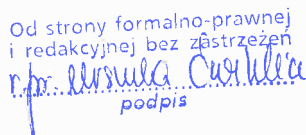 Od strony formalno-prawnej
i redakcyjnej bez zastrzeżeń
r.pr. Urszula
podpis